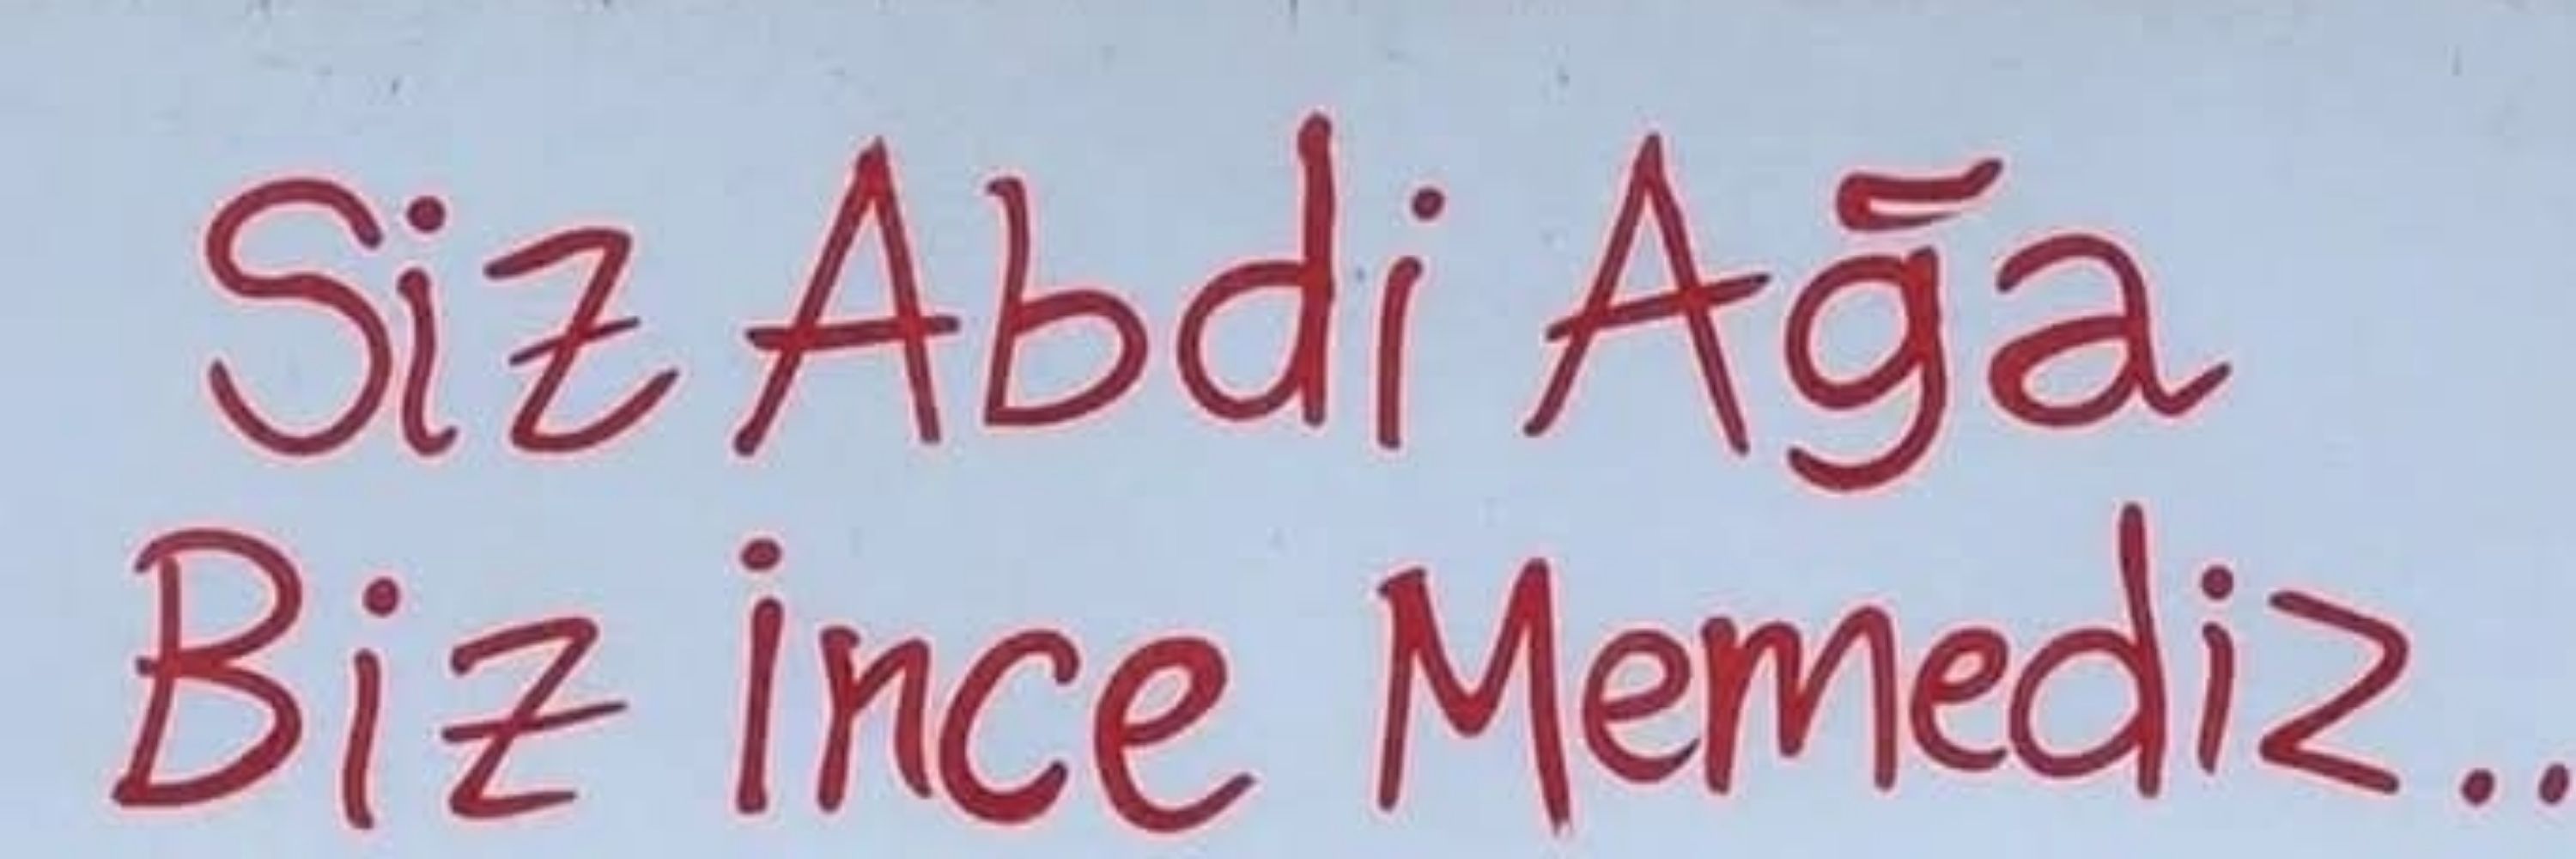 Siz Abdi Ağa
Biz İnce Memediz..